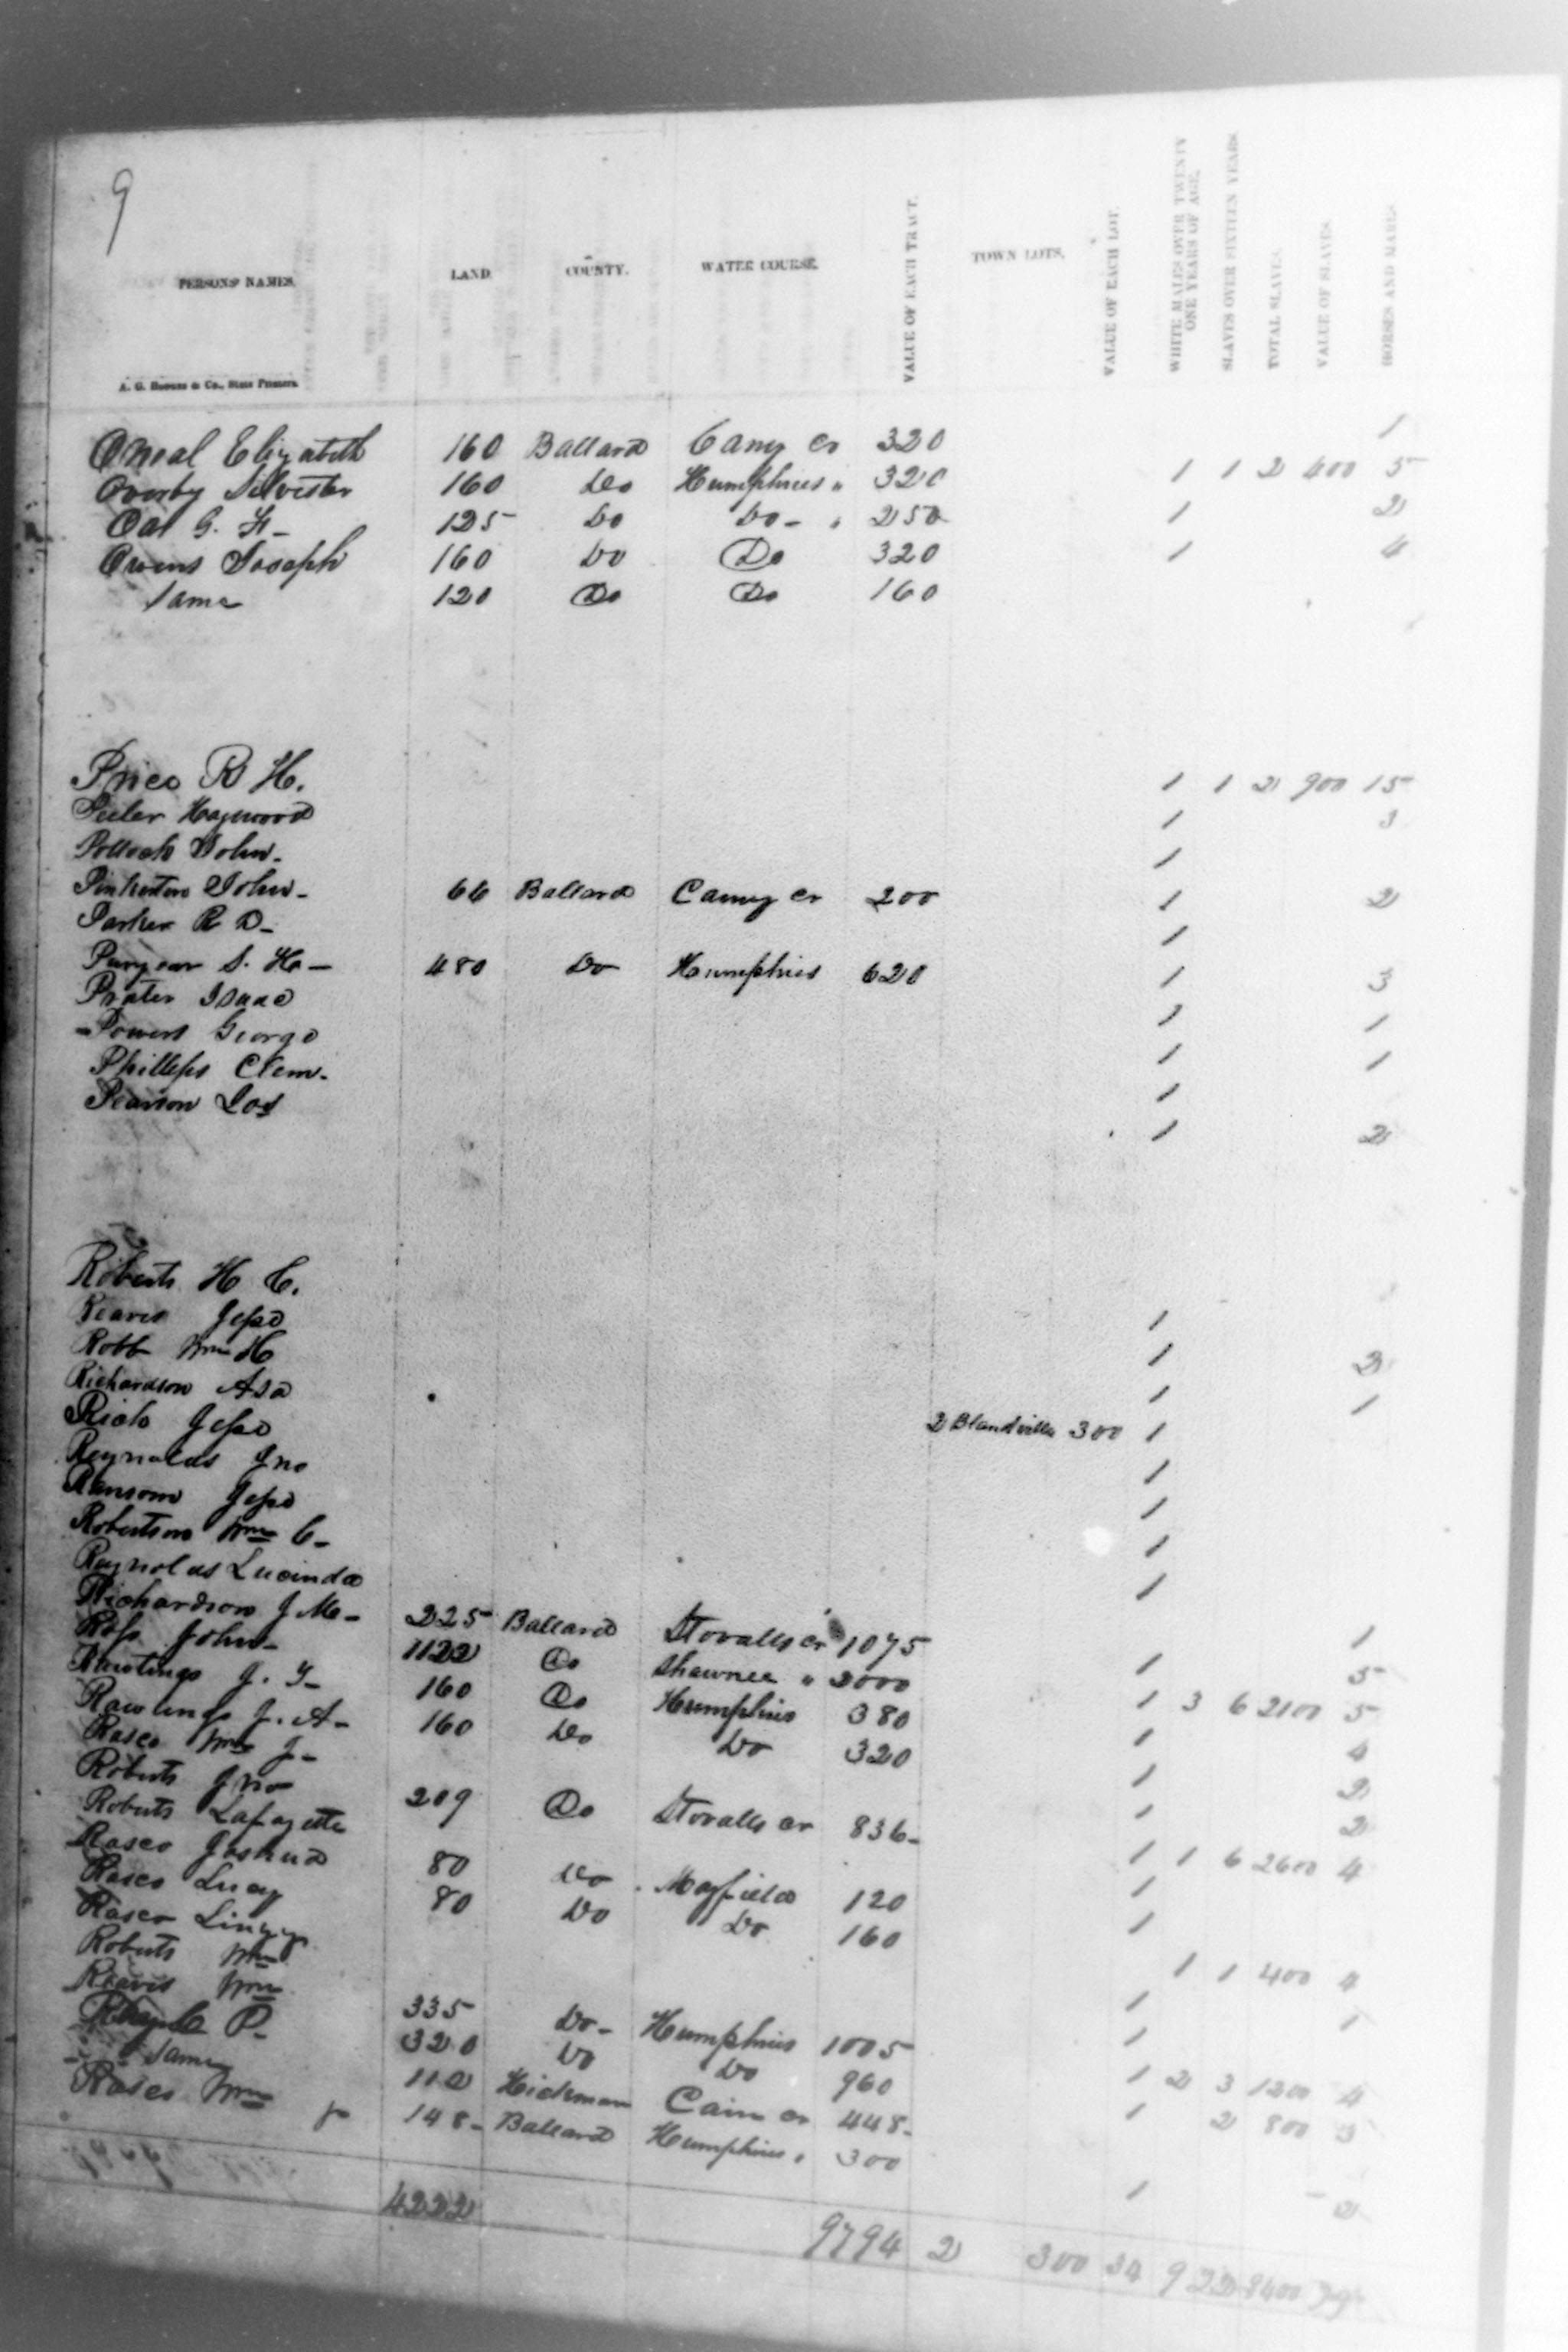 9
PERSONS' NAMES. LAND. COUNTY. WATER COURSE. VALUE OF EACH TRACT. TOWN LOTS. VALUE OF EACH LOT. WHITE MALES OVER TWENTY ONE YEARS OF AGE. SLAVES OVER SIXTEEN YEARS. TOTAL SLAVES. VALUE OF SLAVES. HORSES AND MARES.
A. G. Hodges & Co., State Printers.
Oneal Elizabeth 160 Ballard Camy Cr 320 1
Overby Silvester 160 Do Humphries " 320 1 1 2 400 5
Oat G. 125 Do Do - " 250 1 2
Owens Joseph 160 Do Do 320 1 4
Same 120 Do Do 160
Price R H. 1 1 2 900 15
Peeler Haywood 1 3
Pollock John - 1
Pinkerton John - 66 Ballard Camy cr 200 1 2
Parker R D - 1
Puryear S. H - 480 Do Humphries 620 1 3
Prater Isaac 1 1
Powers George 1 1
Phillips Clem - 1
Pearson Jos 1 2
Roberts H C. 1
Reaves Jesse 1 2
Robb Wm H 1 1
Richardson Asa 2 Blandville 300 1
Rich Jesse 1
Reynolds Jno 1
Ransom Jesse 1
Robertson Wm C - 1
Reynolds Lucinda 225 Ballard Stovalls cr 1075 1
Richardson J M - 1122 Do Shawnee " 2000 1 5
Ross John - 160 Do Humphries 380 1 3 6 2100 5
Rawlings J. Y - 160 Do Do 320 1 4
Rawlings J. A - 1 2
Rasco Wm J - 209 Do Stovalls cr 836 - 1 2
Roberts Jno 1 1 6 2600 4
Roberts Lafayette 80 Do Mayfield 120 1
Rasco Joshua 80 Do Do 160 1
Rasco Lucy 1 1 400 4
Rasco 1 1
Roberts Wm 335 Do - Humphries 1005 1
Reavis Wm 320 Do Do 960 1 2 3 1200 4
P - 112 Hickman Cain cr 448 - 1 2 800 3
Same 148 - Ballard Humphries " 300
Rasco Wm 1 2
4222 9794 2 300 34 9 22 8400